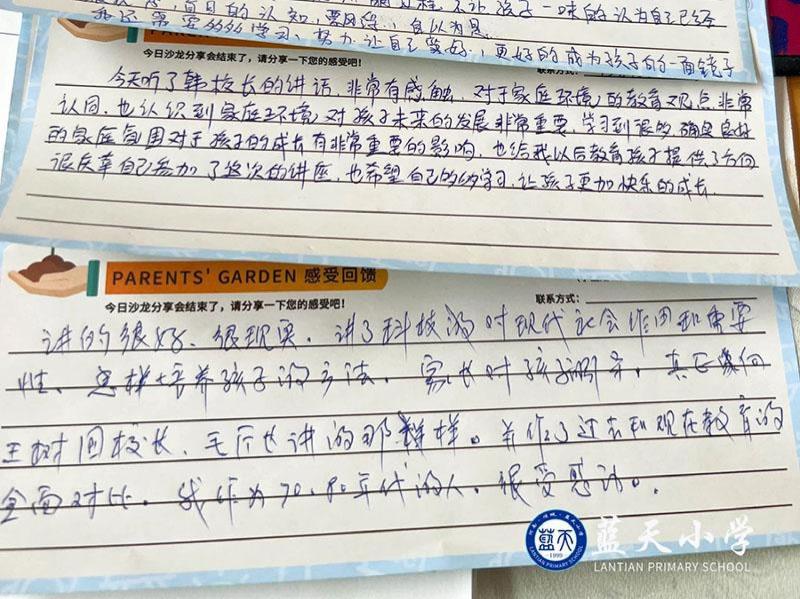 不让孩子一味的认为自己已经
今日沙龙分享会结束了，请分享一下您的感受吧！
今天听了韩校长的讲话，非常有感触，对于家庭环境的教育观点非常
认同，也认识到家庭环境对孩子未来的发展非常重要，学习到很多，确定良好
的家庭氛围对于孩子的成长有非常重要的影响，也给我以后教育孩子提供了方向
很庆幸自己参加了这次的讲座，也希望自己的学习，让孩子更加快乐的成长。
PARENTS' GARDEN 感受回馈
今日沙龙分享会结束了，请分享一下您的感受吧！
联系方式：
讲的很好、很现实。讲了科技对现代社会作用和重要
性、怎样培养孩子的方法。家长对孩子
王树国校长、讲的那样。并作了过去和现在教育的
全面对比。我作为70、80年代的人、很受感动。
蓝天小学
LANTIAN PRIMARY SCHOOL
蓝天
1999